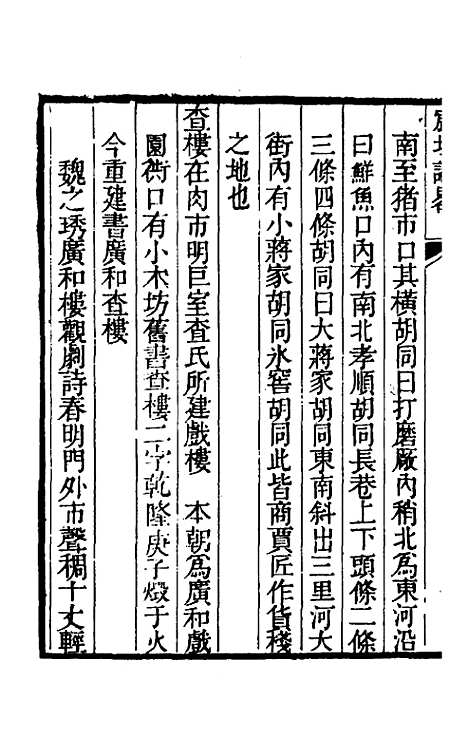 南至猪市口其橫胡同曰打磨厰內稍北爲東河沿
曰鮮魚口內有南北孝順胡同長巷上下頭條二條
三條四條胡同曰大蔣家胡同東南斜出三里河大
街內有小蔣家胡同氷窖胡同此皆商賈匠作貨棧
之地也
查樓在肉市明巨室查氏所建戲樓　本朝爲廣和戲
園衖口有小木坊舊書查樓二字乾隆庚子燬于火
今重建書廣和查樓
魏之琇廣和樓觀劇詩春明門外市聲稠十丈輕